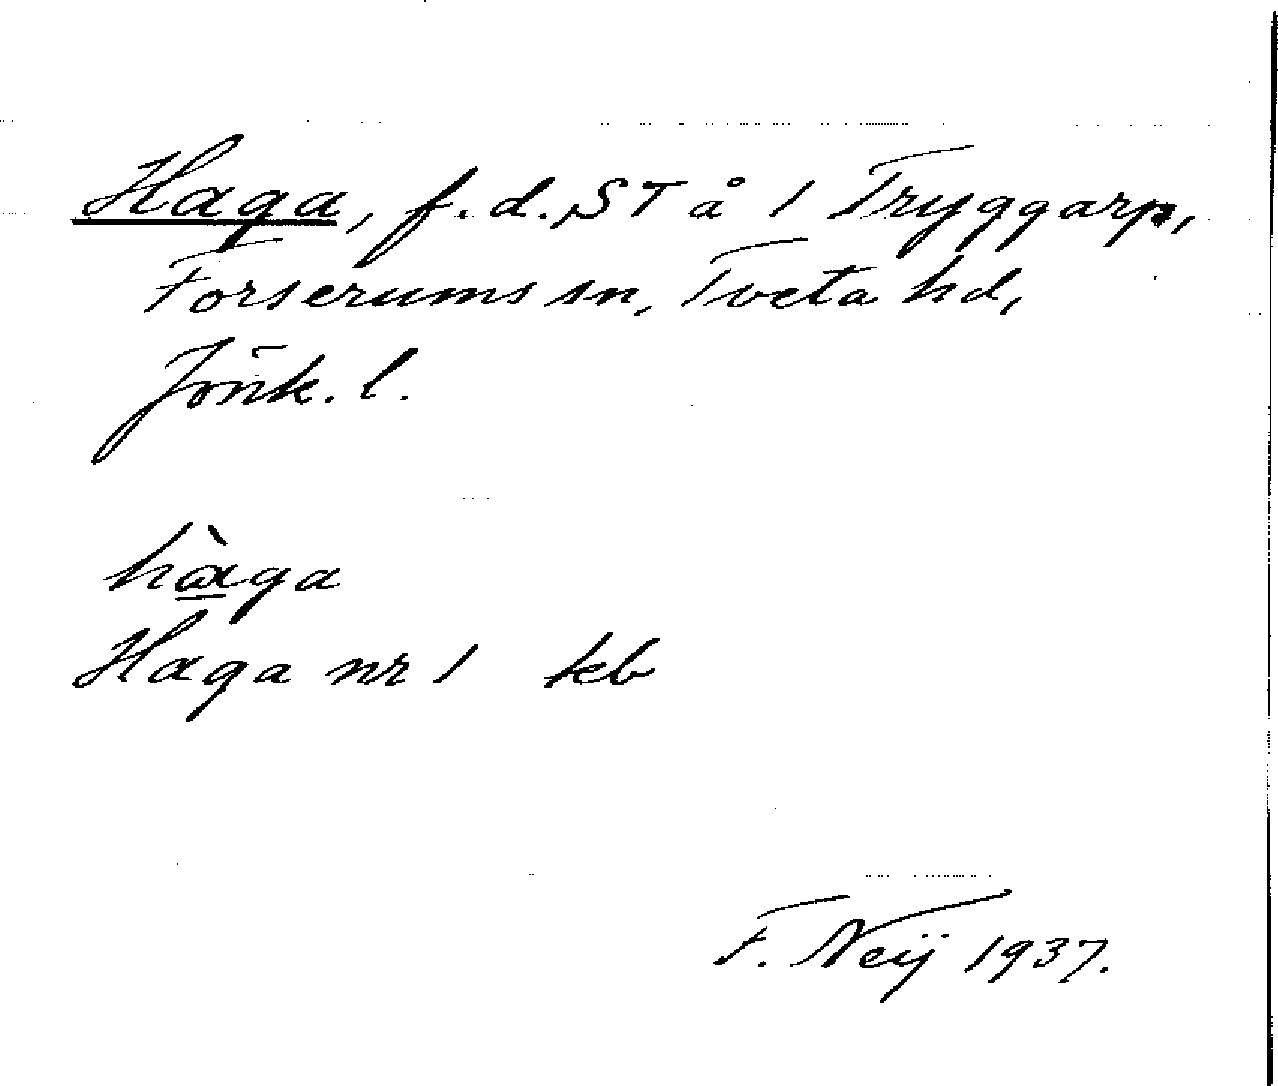 Haga, f. d., ST å 1 Tryggarp,
Forserums sn, Tveta hd,
Jönk. l.
hàga
Haga nr 1 kb
F. Neij 1937.